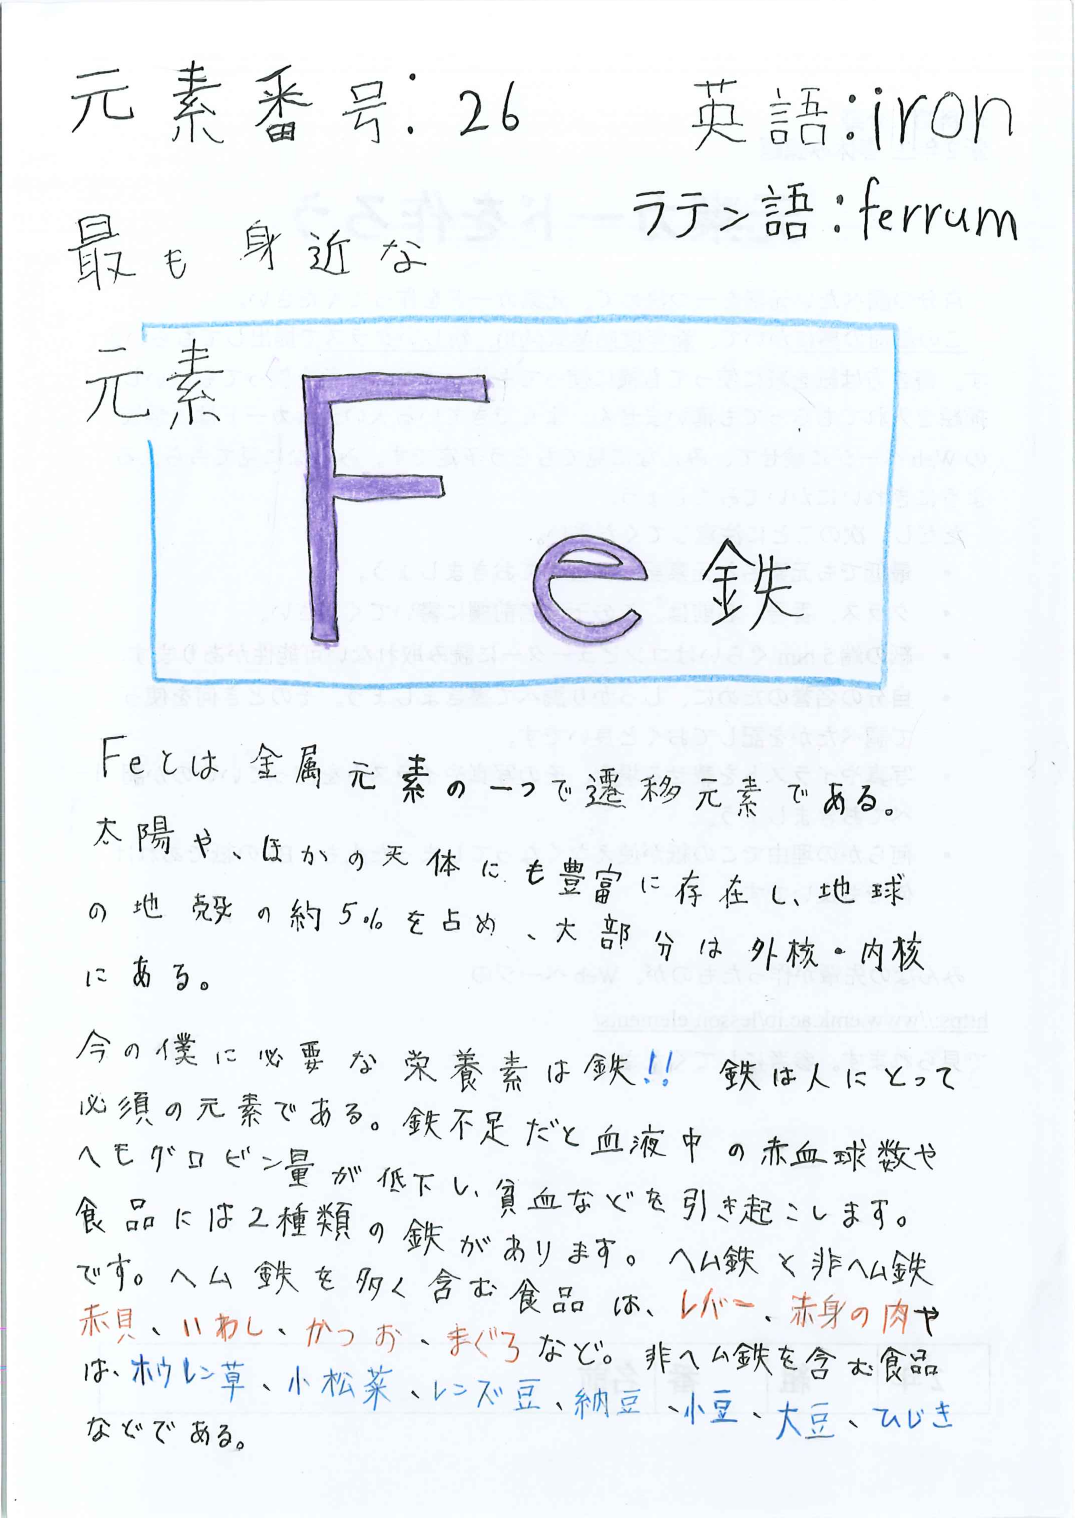 元素番号:26
英語:iron
ラテン語:ferrum
最も身近な
元素
Fe 鉄
Feとは金属元素の一つで遷移元素である。
太陽や、ほかの天体にも豊富に存在し、地球
の地殻の約5%を占め、大部分は外核・内核
にある。
今の僕に必要な栄養素は鉄!! 鉄は人にとって
必須の元素である。鉄不足だと血液中の赤血球数や
ヘモグロビン量が低下し、貧血などを引き起こします。
食品には2種類の鉄があります。ヘム鉄と非ヘム鉄
です。ヘム鉄を多く含む食品は、レバー、赤身の肉や
赤貝、いわし、かつお、まぐろなど。非ヘム鉄を含む食品
は、ホウレン草、小松菜、レンズ豆、納豆、小豆、大豆、ひじき
などである。